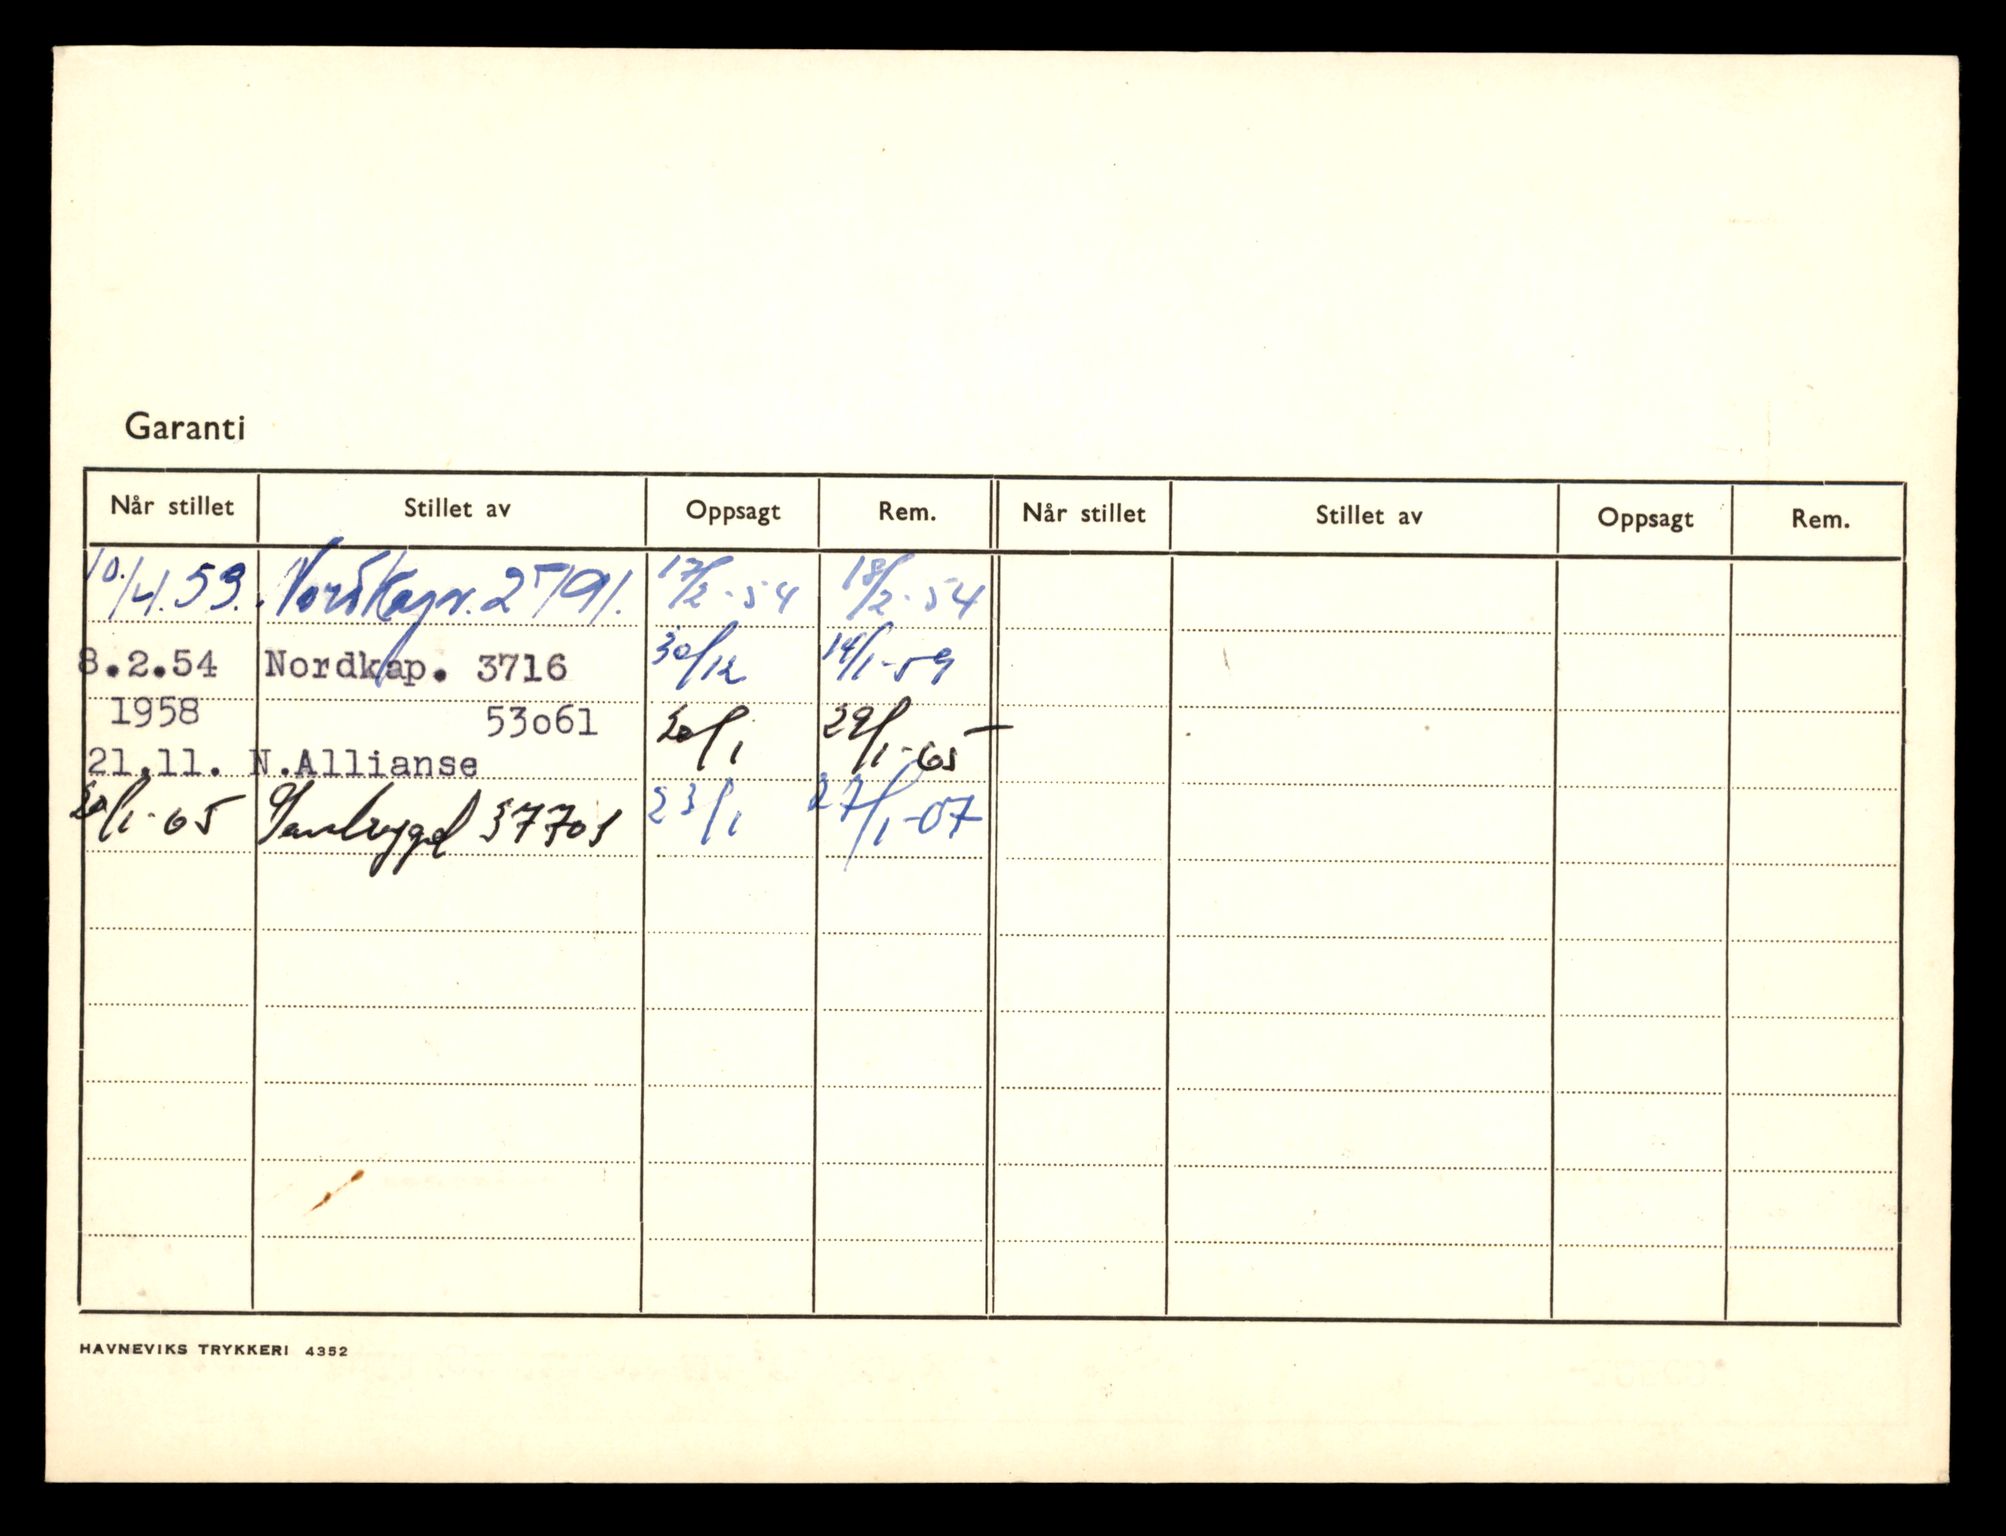 Garanti
Når stillet Stillet av Oppsagt Rem. Når stillet Stillet av Oppsagt Rem.
10/4.53. Nordkap. 2791. 17/2-54 18/2-54
8.2.54 Nordkap. 3716 30/12 14/1-59
1958 53o61 20/1 29/1-65
21.11. N.Allianse
20/1-65 37701 23/1 27/1-67
HAVNEVIKS TRYKKERI 4352